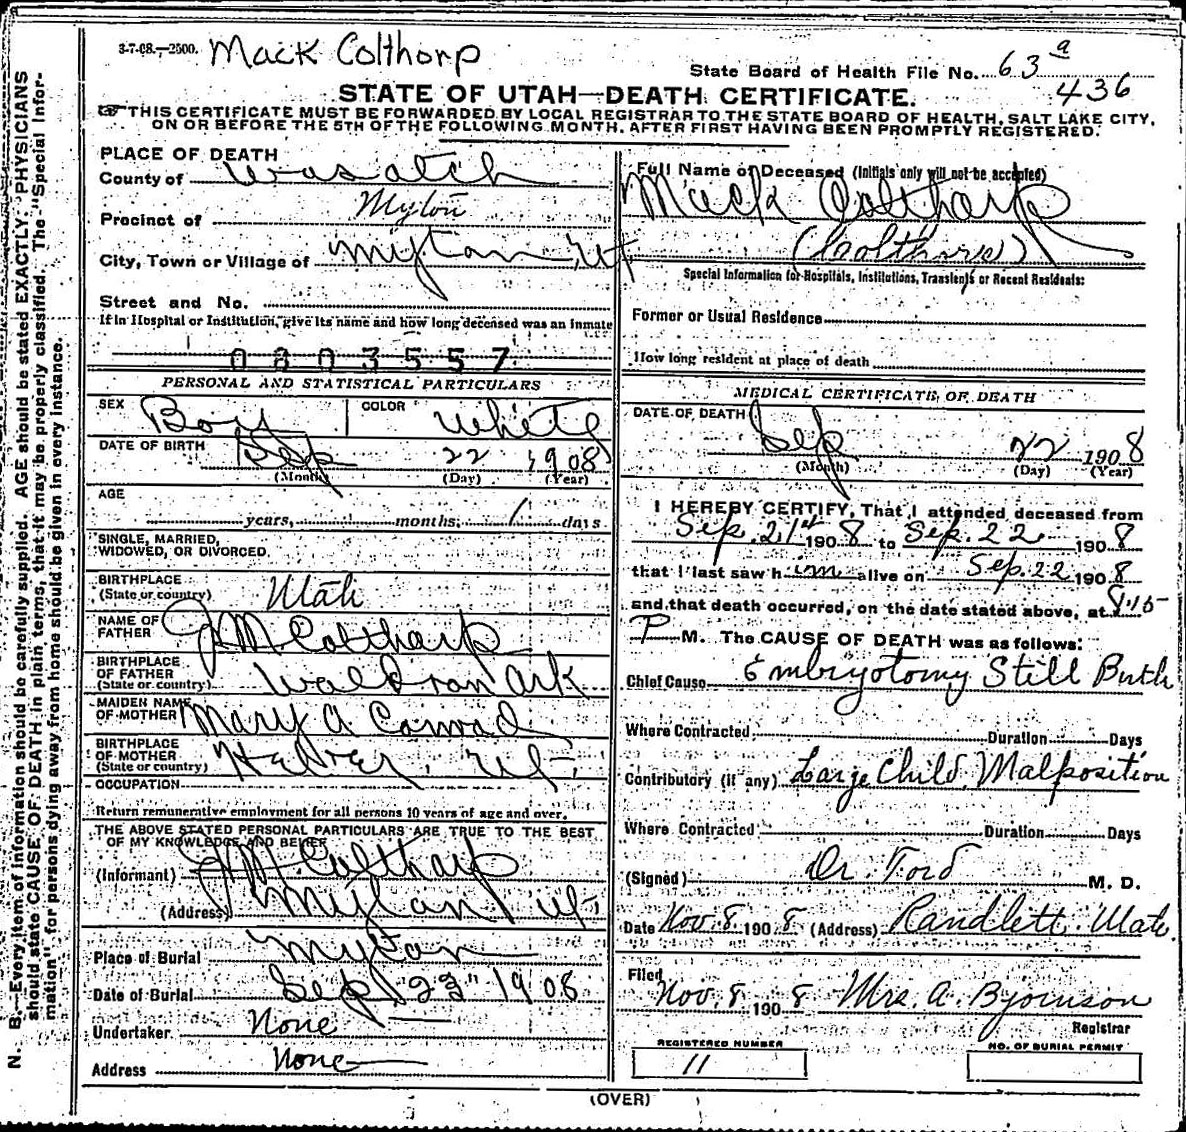 3-7-08.—2500. Mack Colthorp
State Board of Health File No. 63 a
436
STATE OF UTAH—DEATH CERTIFICATE.
THIS CERTIFICATE MUST BE FORWARDED BY LOCAL REGISTRAR TO THE STATE BOARD OF HEALTH, SALT LAKE CITY,
ON OR BEFORE THE 5TH OF THE FOLLOWING MONTH, AFTER FIRST HAVING BEEN PROMPTLY REGISTERED.
PLACE OF DEATH
County of Wasatch
Precinct of Myton
City, Town or Village of Myton Ut
Street and No.
If in Hospital or Institution, give its name and how long deceased was an inmate
0803557
PERSONAL AND STATISTICAL PARTICULARS
SEX Boy COLOR White
DATE OF BIRTH Sep 22 1908
(Month) (Day) (Year)
AGE
years, months, 1 days
SINGLE, MARRIED,
WIDOWED, OR DIVORCED
BIRTHPLACE
(State or country) Utah
NAME OF
FATHER J M Coltharp
BIRTHPLACE
OF FATHER
(State or country) Waldron Ark
MAIDEN NAME
OF MOTHER Mary A Conrad
BIRTHPLACE
OF MOTHER
(State or country) Heber, Ut,
OCCUPATION
Return remunerative employment for all persons 10 years of age and over.
THE ABOVE STATED PERSONAL PARTICULARS ARE TRUE TO THE BEST
OF MY KNOWLEDGE AND BELIEF
(Informant) J M Coltharp
(Address) Myton Ut
Place of Burial Myton
Date of Burial Sep 23" 1908
Undertaker None
Address None
Full Name of Deceased (Initials only will not be accepted)
Mack Coltharp
(Coolthorpe)
Special Information for Hospitals, Institutions, Transients or Recent Residents:
Former or Usual Residence
How long resident at place of death
MEDICAL CERTIFICATE OF DEATH
DATE OF DEATH Sep 22 1908
(Month) (Day) (Year)
I HEREBY CERTIFY, That I attended deceased from
Sep. 21st 1908 to Sep. 22 1908
that I last saw him alive on Sep. 22 1908
and that death occurred, on the date stated above, at 8:15
P M. The CAUSE OF DEATH was as follows:
Chief Cause Embryotomy Still Birth
Where Contracted Duration Days
Contributory (if any) Large Child, Malposition
Where Contracted Duration Days
(Signed) Dr. Ford M. D.
Date Nov. 8. 1908 (Address) Randlett Utah.
Filed
Nov. 8 1908 Mrs. A. Bjornson
Registrar
REGISTERED NUMBER
11
NO. OF BURIAL PERMIT
(OVER)
N. B.—Every item of information should be carefully supplied. AGE should be stated EXACTLY. PHYSICIANS
should state CAUSE OF DEATH in plain terms, that it may be properly classified. The "Special Infor-
mation" for persons dying away from home should be given in every instance.